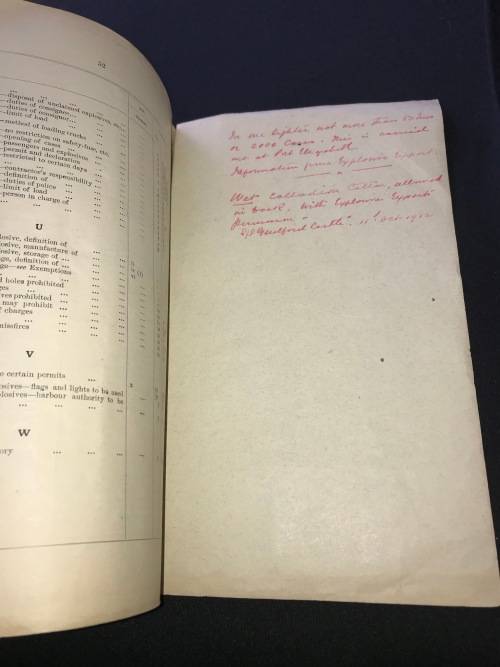 52
—disposal of unclaimed explosives, etc.
—duties of consignee
—duties of consignor
—limit of load
—method of loading trucks
—no restriction on safety-fuse, etc.
—opening of cases
—passengers and explosives
—permit and declaration
—restricted to certain days
—contractor's responsibility
—definition of
—duties of police
—limit of load
—person in charge of
U
losive, definition of
losive, manufacture of
losive, storage of
definition of
—see Exemptions
d holes prohibited
ges
ves prohibited
may prohibit
f charges
misfires
V
e certain permits
osives—flags and lights to be used
plosives—harbour authority to be
W
ory
In one lighter not more than 50 tons
or 2000 Cases. This is carried
me at Port Elizabeth
Information from Explosives Expert
Wet Collodion Cotton, allowed
in Dock, with Explosives Experts
Permission
S/S "Guildford Castle". 11th Oct. 1912